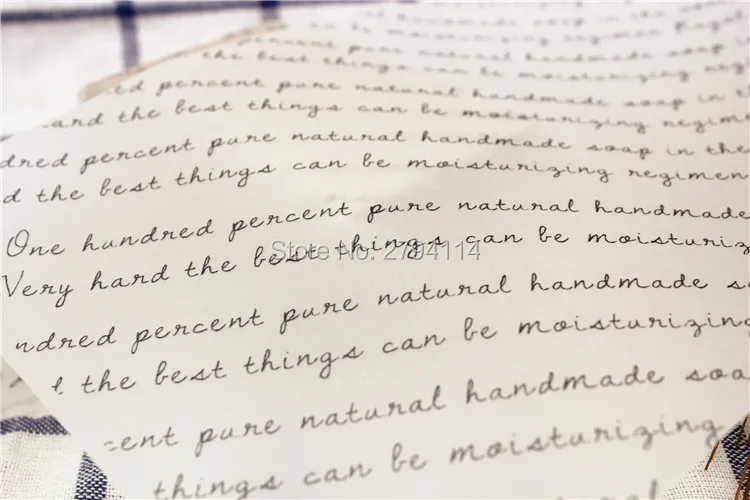 percent pure natural handmade soap
the best things can be moisturizing
percent pure natural handmade soap in
and the best things can be moisturizing regimen
dred percent pure natural handmade soap in the
d the best things can be moisturizing regimen
One hundred percent pure natural handmade
Very hard the best things can be moisturiz
Store No: 2794114
ndred percent pure natural handmade s
the best things can be moisturizing
cent pure natural handmade soa
things can be moisturizing